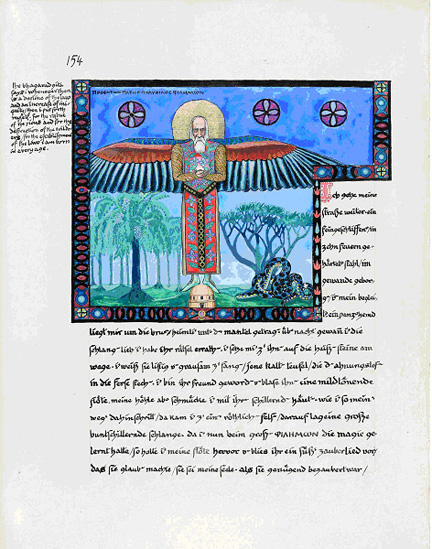 154
the bhagavadgita
says: whenever there
is a decline of the law
and an increase of ini-
quity, then i put forth
myself. for the rescue
of the pious and for the
destruction of the evildo-
ers, for the establishment
of the law i am born
in every age.
ΠΑΤΗΡ ΦΙΛΗΜΩΝ
Ich gehe meine
straße weiter. ein
feingeschliffen/ in
zehn feuern ge-
härtet' stahl/ im
gewande gebor-
g'/ ist mein beglei-
t'. ein panz'hemd
liegt mir um die brust/ heimli' unt' d' mantel getrag'. üb' nacht gewañ i' die
schlang' lieb/ i' habe ihr rätsel errath'. i' setze mi' z' ihn' auf die heiß' steine am
wege. i' weiß sie listig u' grausam z' fang'/ jene kalt' teufel/ die d' ahnungslos'
in die ferse stech'. i' bin ihr freund geword' u' blase ihn' eine mildtönende
flöte. meine höhle ab' schmücke i' mit ihr' schillernd' häut'. wie i' so mein'
weg' dahinschritt/ da kam i' z' ein' röthlich' fels'/ darauf lag eine große
buntschillernde schlange. da i' nun beim groß' ΦΙΛΗΜΩΝ die magie ge-
lernt hatte/ so holte i' meine flöte hervor u' blies ihr ein süß' zauberlied vor/
das sie glaub' machte/ sie sei meine seele. als sie genügend bezaubert war/